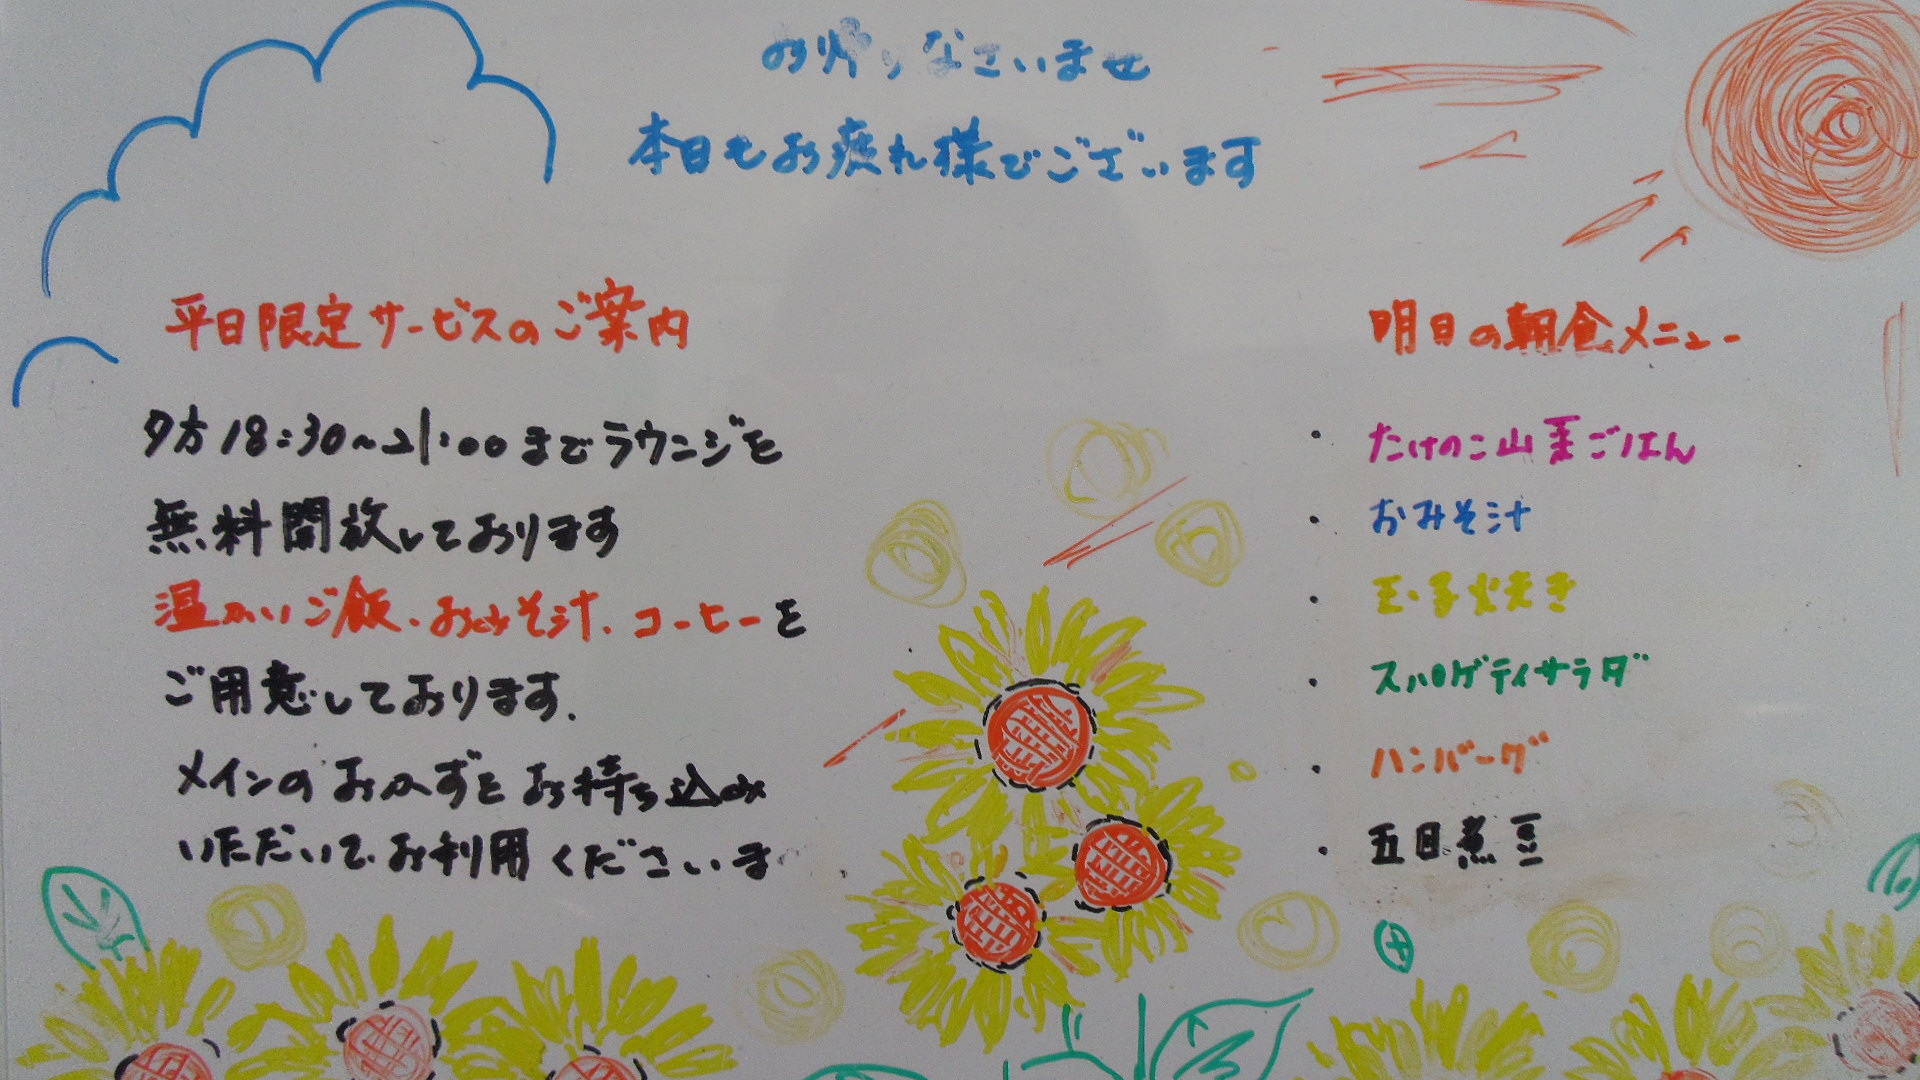 お帰りなさいませ
本日もお疲れ様でございます
平日限定サービスのご案内
夕方18:30~21:00までラウンジを
無料開放しております
温かいご飯、おみそ汁、コーヒーを
ご用意しております。
メインのおかずをお持ち込み
いただいて、お利用くださいませ
明日の朝食メニュー
・たけのこ山菜ごはん
・おみそ汁
・玉子焼き
・スパゲティサラダ
・ハンバーグ
・五目煮豆